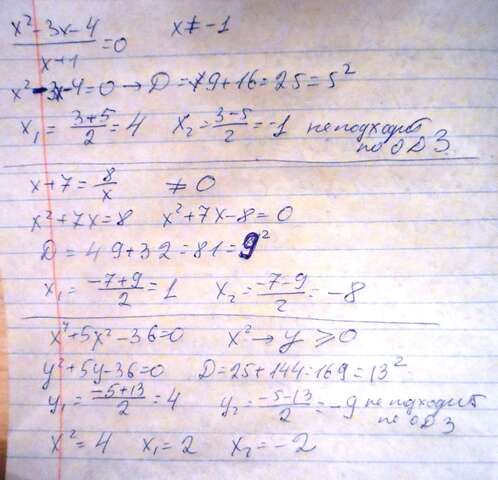 x²-3x-4/x+1=0 x≠-1
x²-3x-4=0→D=9+16=25=5²
x₁=3+5/2=4 x₂=3-5/2=-1 не подходит
по ОДЗ
x+7=8/x ≠0
x²+7x=8 x²+7x-8=0
D=49+32=81=9²
x₁=-7+9/2=1 x₂=-7-9/2=-8
x⁴+5x²-36=0 x²→y⩾0
y²+5y-36=0 D=25+144=169=13²
y₁=-5+13/2=4 y₂=-5-13/2=-9 не подходит
по ОДЗ
x²=4 x₁=2 x₂=-2